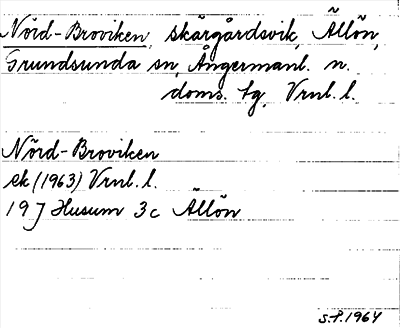 Nörd-Broviken, skärgårdsvik, Ällön,
Grundsunda sn, Ångermanl. n.
doms. tg, Vrnl. l.
Nörd-Broviken
ek (1963) Vrnl. l.
19 J Husum 3c Ällön
S.P. 1964